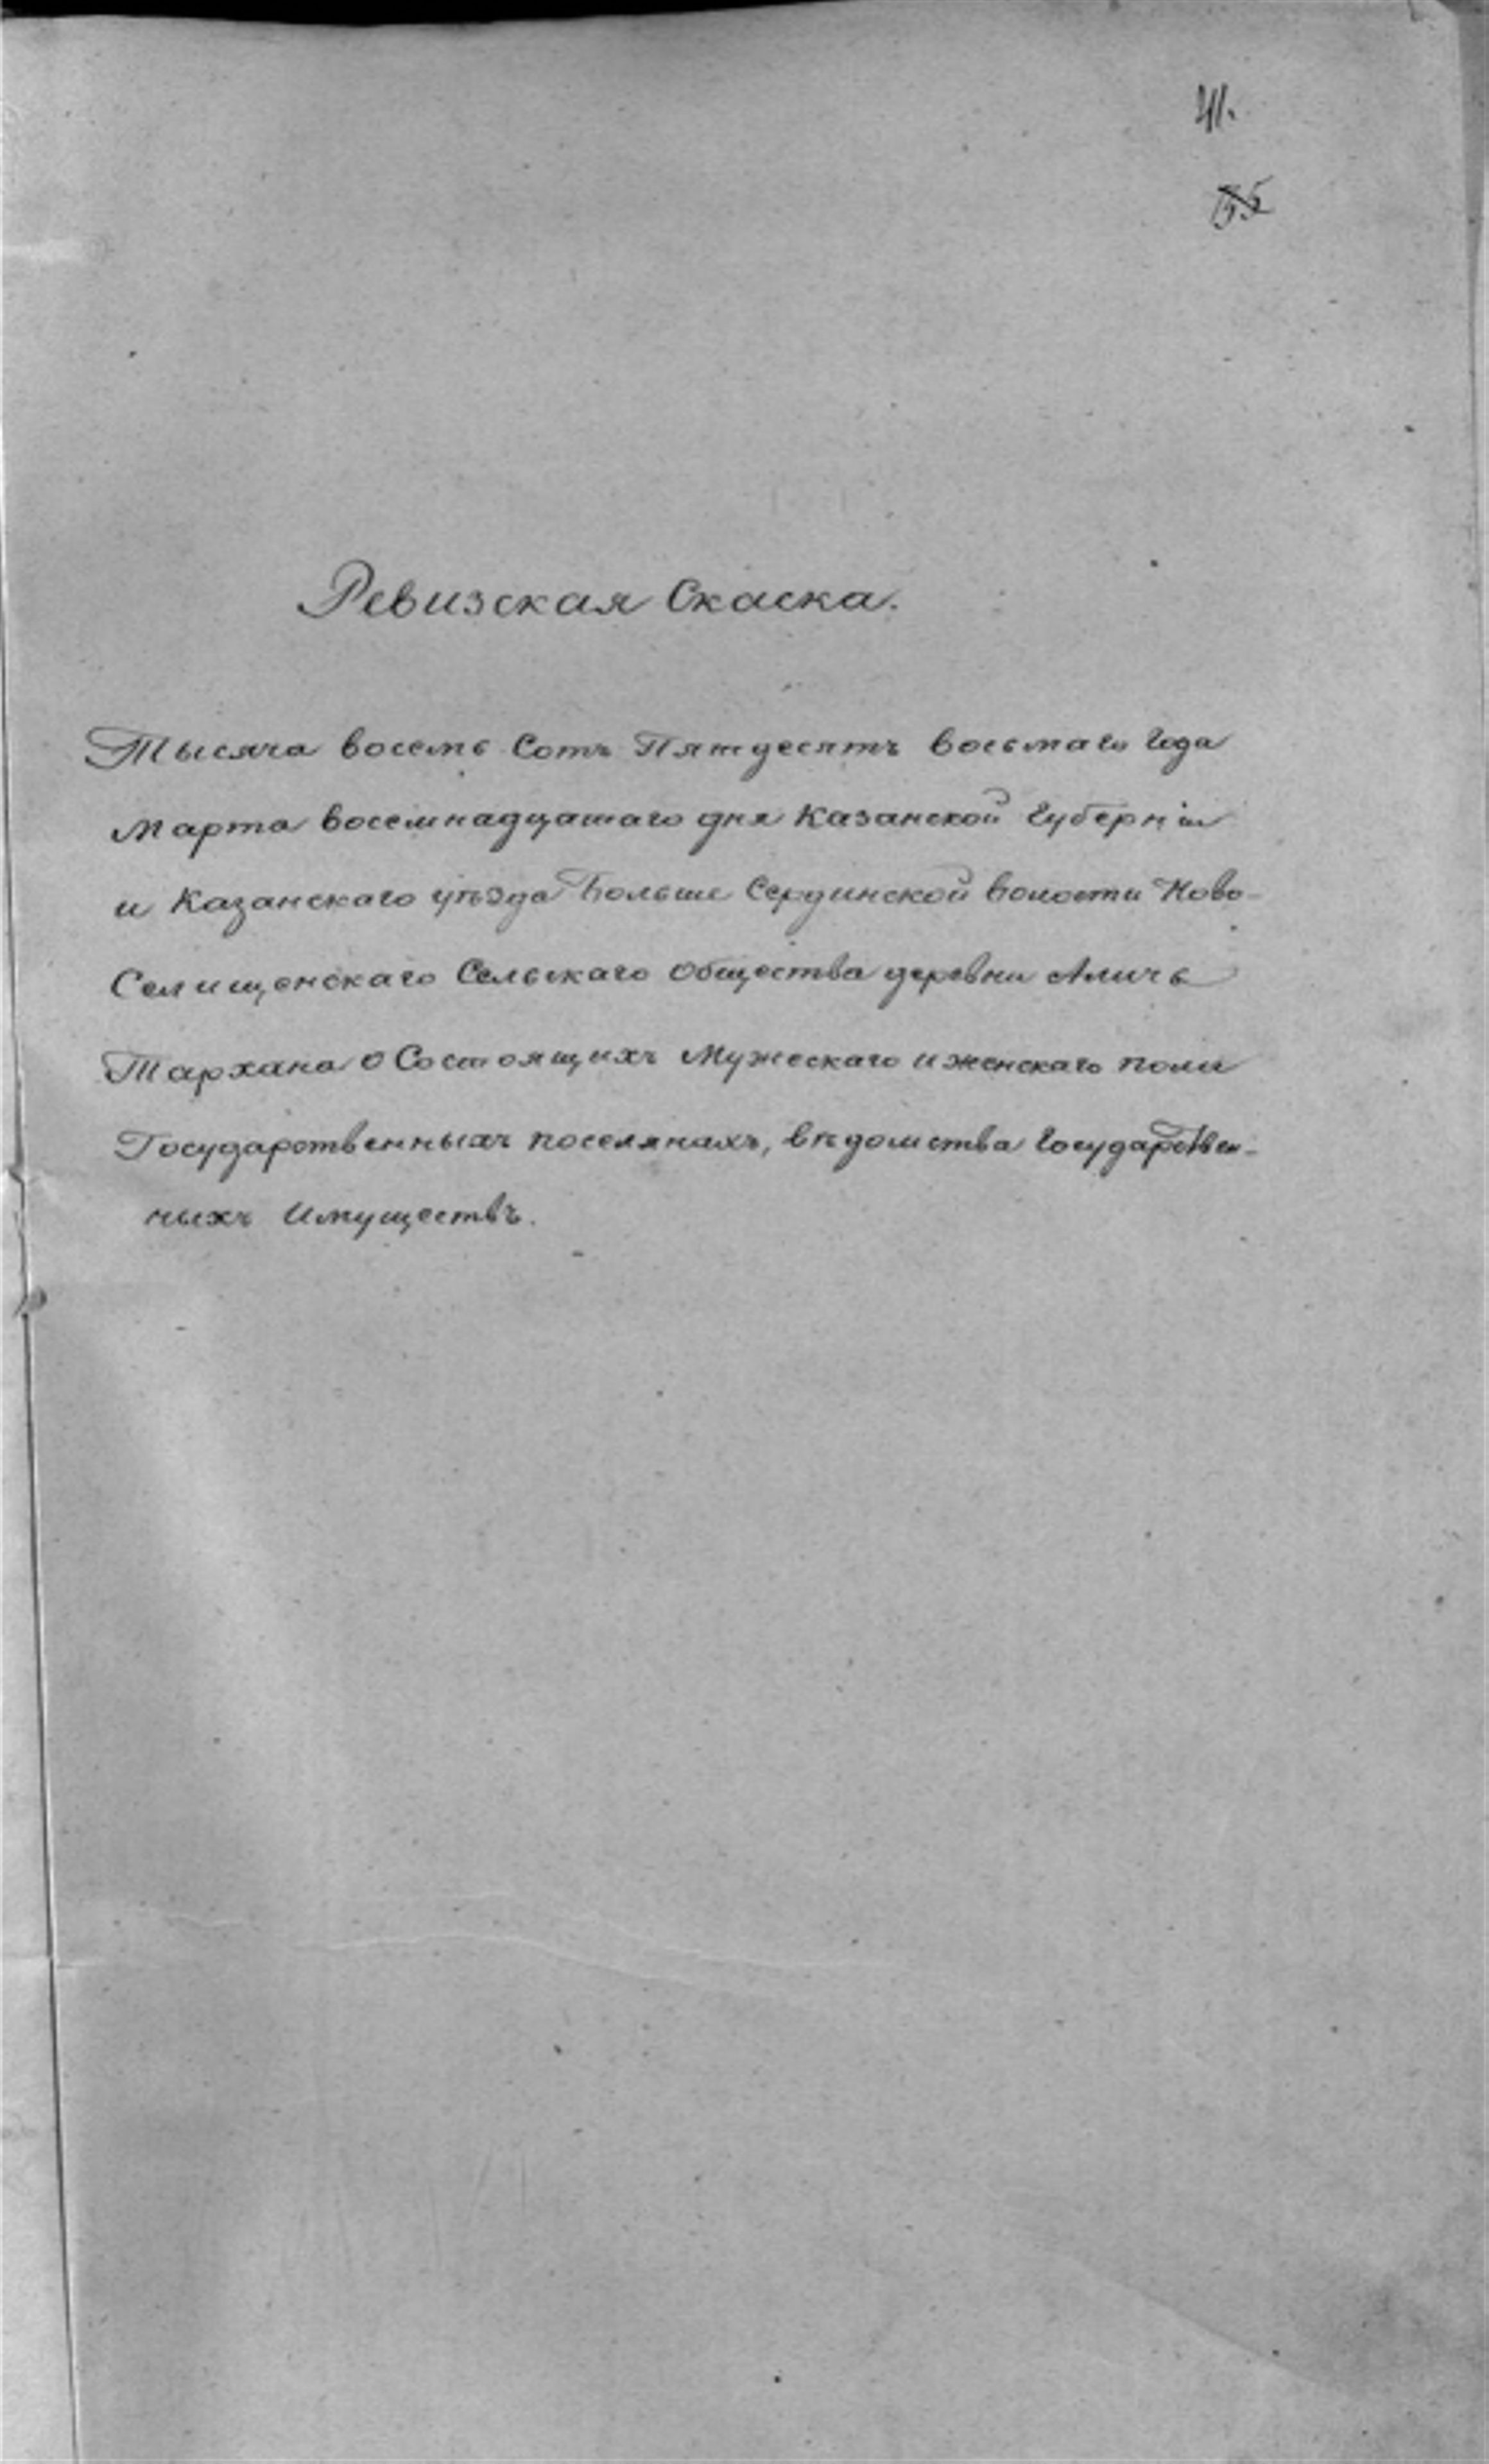 41.
55
Ревизская Скаска.
Тысяча восемь Сотъ Пятдесятъ восьмаго Года
Марта восемнадцатаго дня Казанской Губерніи
и Казанскаго уѣзда Больше Сердинской волости Ново-
Селищенскаго Сельскаго Общества деревни Аличь
Тархана о Состоящихъ Мужескаго и женскаго пола
Государственныхъ поселянахъ, вѣдомства Государствен-
ныхъ Имуществъ.